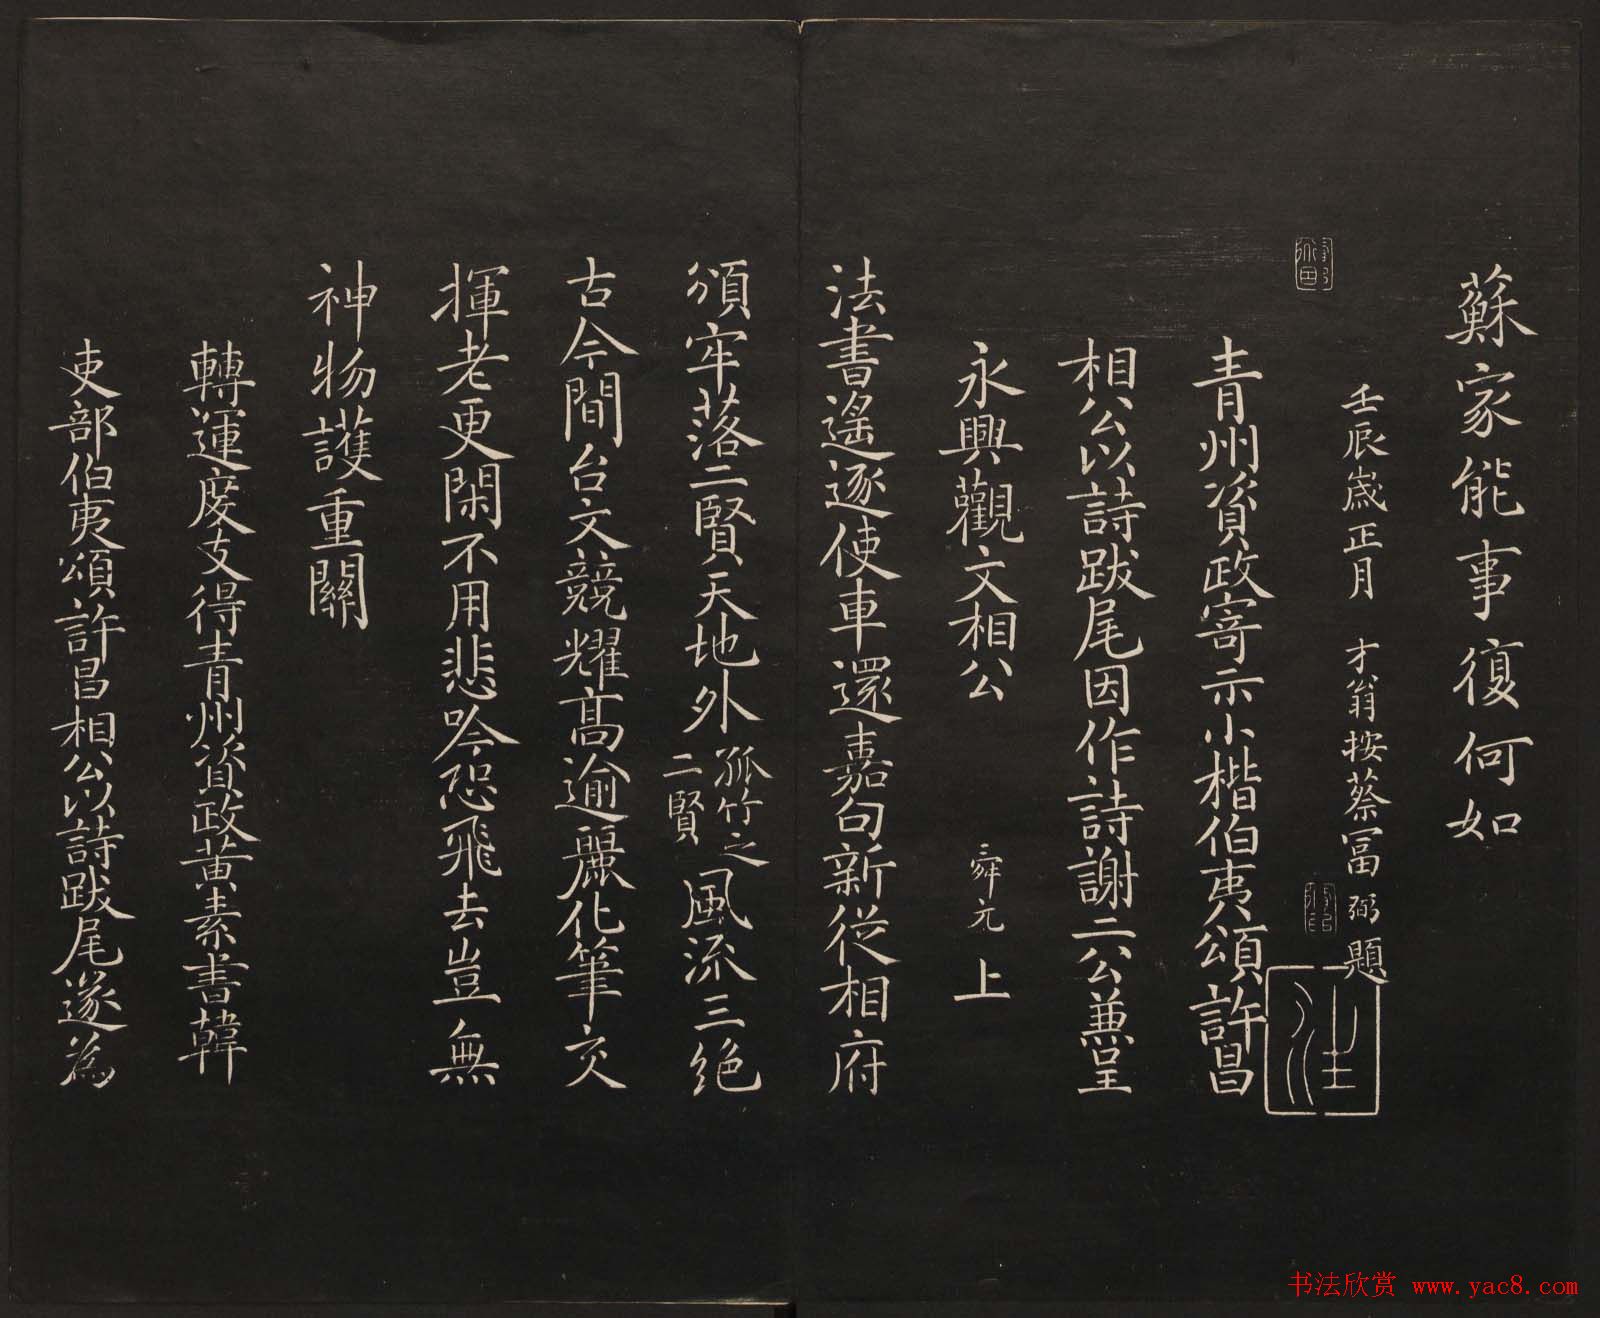 蘇家能事復何如
壬辰歲正月　才翁按蔡冨弼題
青州資政寄示小楷伯夷頌許昌
相公以詩跋尾因作詩謝二公兼呈
永興觀文相公　舜元上
法書遙逐使車還嘉句新從相府
頒牢落二賢天地外孤竹之二賢風流三絕
古今間台文競耀高逾麗化筆交
揮老更閑不用悲吟恐飛去豈無
神物護重關
轉運度支得青州資政黃素書韓
吏部伯夷頌許昌相公以詩跋尾遂為
书法欣赏 www.yac8.com